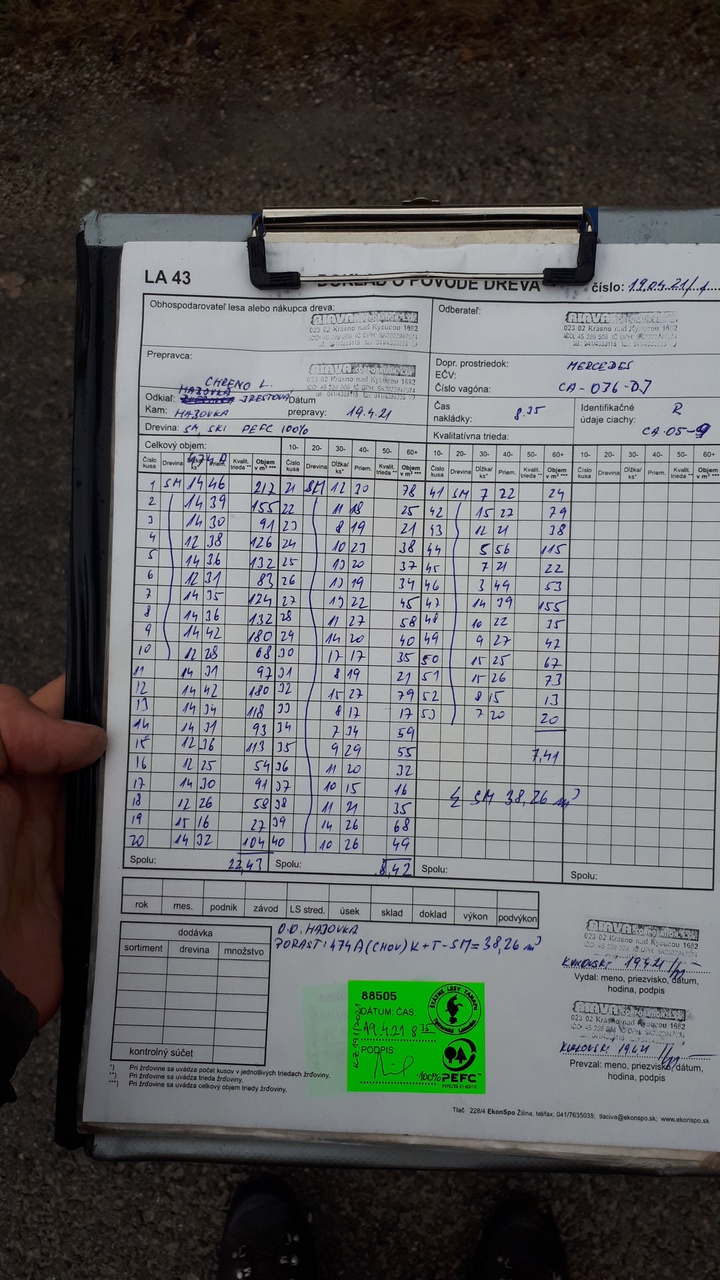 LA 43
DOKLAD O PÔVODE DREVA
číslo: 19.04.21/1
Obhospodarovateľ lesa alebo nákupca dreva:
023 02 Krásno nad Kysucou 1682
Odberateľ:
023 02 Krásno nad Kysucou 1682
Prepravca:
023 02 Krásno nad Kysucou 1682
CHRENO L.
Dopr. prostriedok: MERCEDES
EČV:
Číslo vagóna: CA-076-DJ
Odkiaľ: HAJOVKA
Kam: HAJOVKA
Dátum prepravy: 19.4.21
Čas nakládky: 8.35
Identifikačné údaje ciachy: R
CA-05-9
Drevina: SM, SKI PEFC 100%
Kvalitatívna trieda:
Celkový objem: 10- 20- 30- 40- 50- 60+ 10- 20- 30- 40- 50- 60+ 10- 20- 30- 40- 50- 60+
474 A
Číslo kusa Drevina Priem. Kvalit. trieda** Objem v m³ *** Číslo kusa Drevina Dĺžka/ks* Priem. Kvalit. trieda** Objem v m³ ***
1 SM 14 46 217 21 SM 12 30 78 41 SM 7 22 24
2 14 39 155 22 11 18 25 42 15 27 79
3 14 30 91 23 8 19 21 43 12 21 38
4 12 38 126 24 10 23 38 44 5 56 115
5 14 36 132 25 13 20 37 45 7 21 22
6 12 31 83 26 13 19 34 46 3 49 53
7 14 35 124 27 13 22 45 47 14 39 155
8 14 36 132 28 11 27 58 48 10 22 35
9 14 42 180 29 14 20 40 49 9 27 47
10 12 28 68 30 17 17 35 50 15 25 67
11 14 31 97 31 8 19 21 51 15 26 73
12 14 42 180 32 15 27 79 52 8 15 13
13 14 34 118 33 8 17 17 53 7 20 20
14 14 31 93 34 7 34 59
15 12 36 113 35 9 29 55 7,41
16 12 25 54 36 11 20 32
17 14 30 91 37 10 15 16
18 12 26 58 38 11 21 35 SM 38,26 m³
19 15 16 27 39 14 26 68
20 14 32 104 40 10 26 49
Spolu: 22,43 Spolu: 8,42 Spolu: Spolu:
rok mes. podnik závod LS stred. úsek sklad doklad výkon podvýkon
dodávka
sortiment drevina množstvo
kontrolný súčet
O.O. HAJOVKA
PORAST: 474A (CHOV) K+T-SM=38,26 m³
KUKOVSKI 19.4.21
Vydal: meno, priezvisko, dátum, hodina, podpis
023 02 Krásno nad Kysucou 1682
KUKOVSKI 19.4.21
Prevzal: meno, priezvisko, dátum, hodina, podpis
88505
DÁTUM, ČAS:
19.4.21 8 35
PODPIS
ŠTÁTNE LESY TANAPu
100% PEFC
*) Pri žrďovine sa uvádza počet kusov v jednotlivých triedach žrďoviny.
**) Pri žrďovine sa uvádza trieda žrďoviny.
***) Pri žrďovine sa uvádza celkový objem triedy žrďoviny.
Tlač 228/4 EkonSpo Žilina, tel/fax: 041/7635035; tlaciva@ekonspo.sk; www.ekonspo.sk